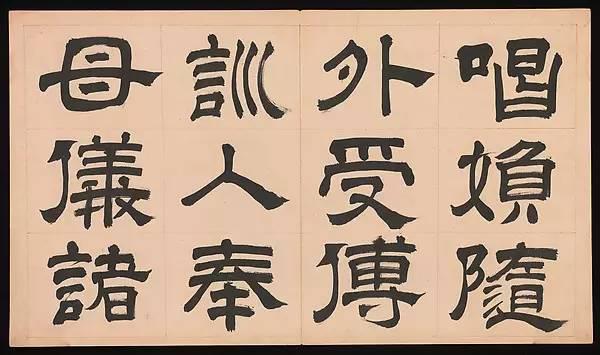 唱媍隨
外受傅
訓入奉
母儀諸